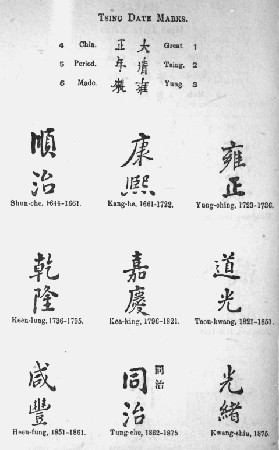 TSING DATE MARKS.
4 Chia. 正 大 Great 1
5 Period. 年 清 Tsing. 2
6 Made. 製 雍 Yung 3
順治 康熙 雍正
Shun-che, 1644-1661. Kang-he, 1661-1722. Yung-ching, 1723-1736.
乾隆 嘉慶 道光
Keen-lung, 1736-1795. Kea-king, 1796-1821. Taou-kwang, 1821-1851.
咸豐 同治 同治 光緒
Heen-fung, 1851-1861. Tung-che, 1862-1875 Kwang-shiu, 1875.